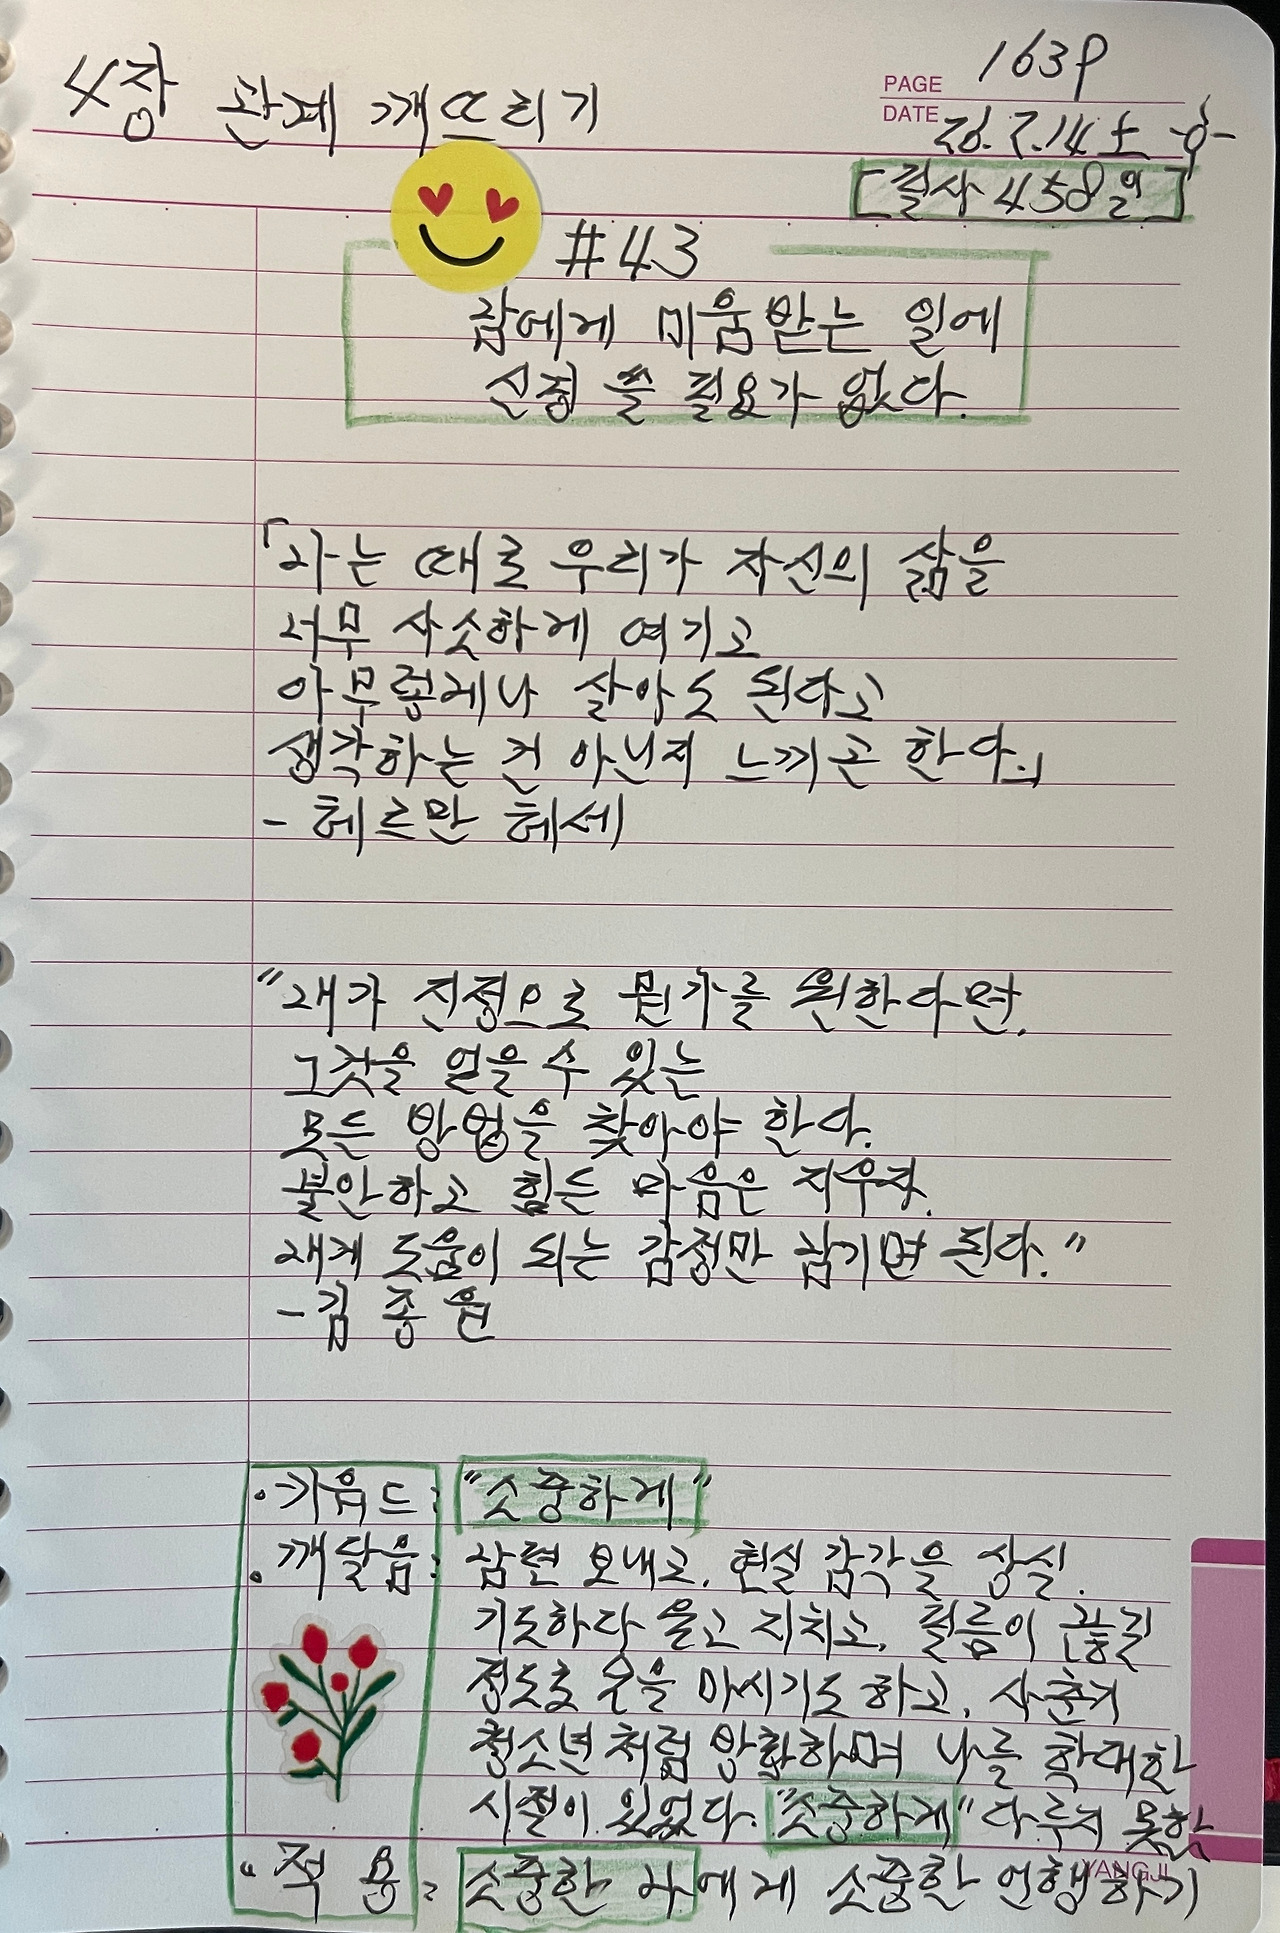 4장 관계 깨뜨리기
163p
PAGE
DATE 26.2.14 토
[필사 458일]
#43
남에게 미움받는 일에
신경 쓸 필요가 없다.
「나는 때로 우리가 자신의 삶을
너무 사소하게 여기고
아무렇게나 살아도 된다고
생각하는 건 아닌지 느끼곤 한다.」
- 헤르만 헤세
"내가 진정으로 뭔가를 원한다면,
그것을 얻을 수 있는
모든 방법을 찾아야 한다.
불안하고 힘든 마음은 지우자.
내게 도움이 되는 감정만 남기면 된다."
- 김종원
· 키워드: "소중하게"
· 깨달음: 남편 보내고, 현실 감각을 상실.
기도하다 울고 지치고, 필름이 끊길
정도로 술을 마시기도 하고, 사춘기
청소년처럼 방황하며 나를 학대한
시절이 있었다. "소중하게" 다루지 못한
· 적용: 소중한 나에게 소중한 언행하기
YANGJI